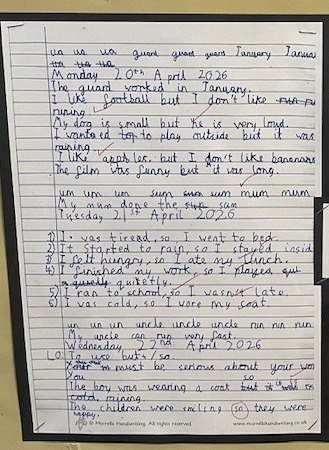 ua ua ua guard guard guard January Janua
ua ua ua
Monday 20th April 2026
The guard worked in January.
I like football but I don't like run ru
runing.
My dog is small but he is very loud.
I wanted to to play outside but it was
raining.
I like apples. but I don't like bananans
The film was funny but it was long.
um um um sum sum sum mum mum
My mum done the sum sum
Tuesday 21st April 2026
1) I was tiread, so I went to bed.
2) It started to rain, so I stayed insid
3) I felt hungry, so I ate my lunch.
4) I finished my work, so I played
quitetly.
5) I ran to school, so I wasn't late.
6) I was cold, so I wore my coat.
un un un uncle uncle uncle run run run
My uncle can run very fast.
Wednesday 22nd April 2026
LO: To use but / so.
must be serious about your wo
You so
The boy was wearing a coat but it was
cold, raining.
The children were smiling so they were
happy.
© Morrells Handwriting. All rights reserved. www.morrellshandwriting.co.uk